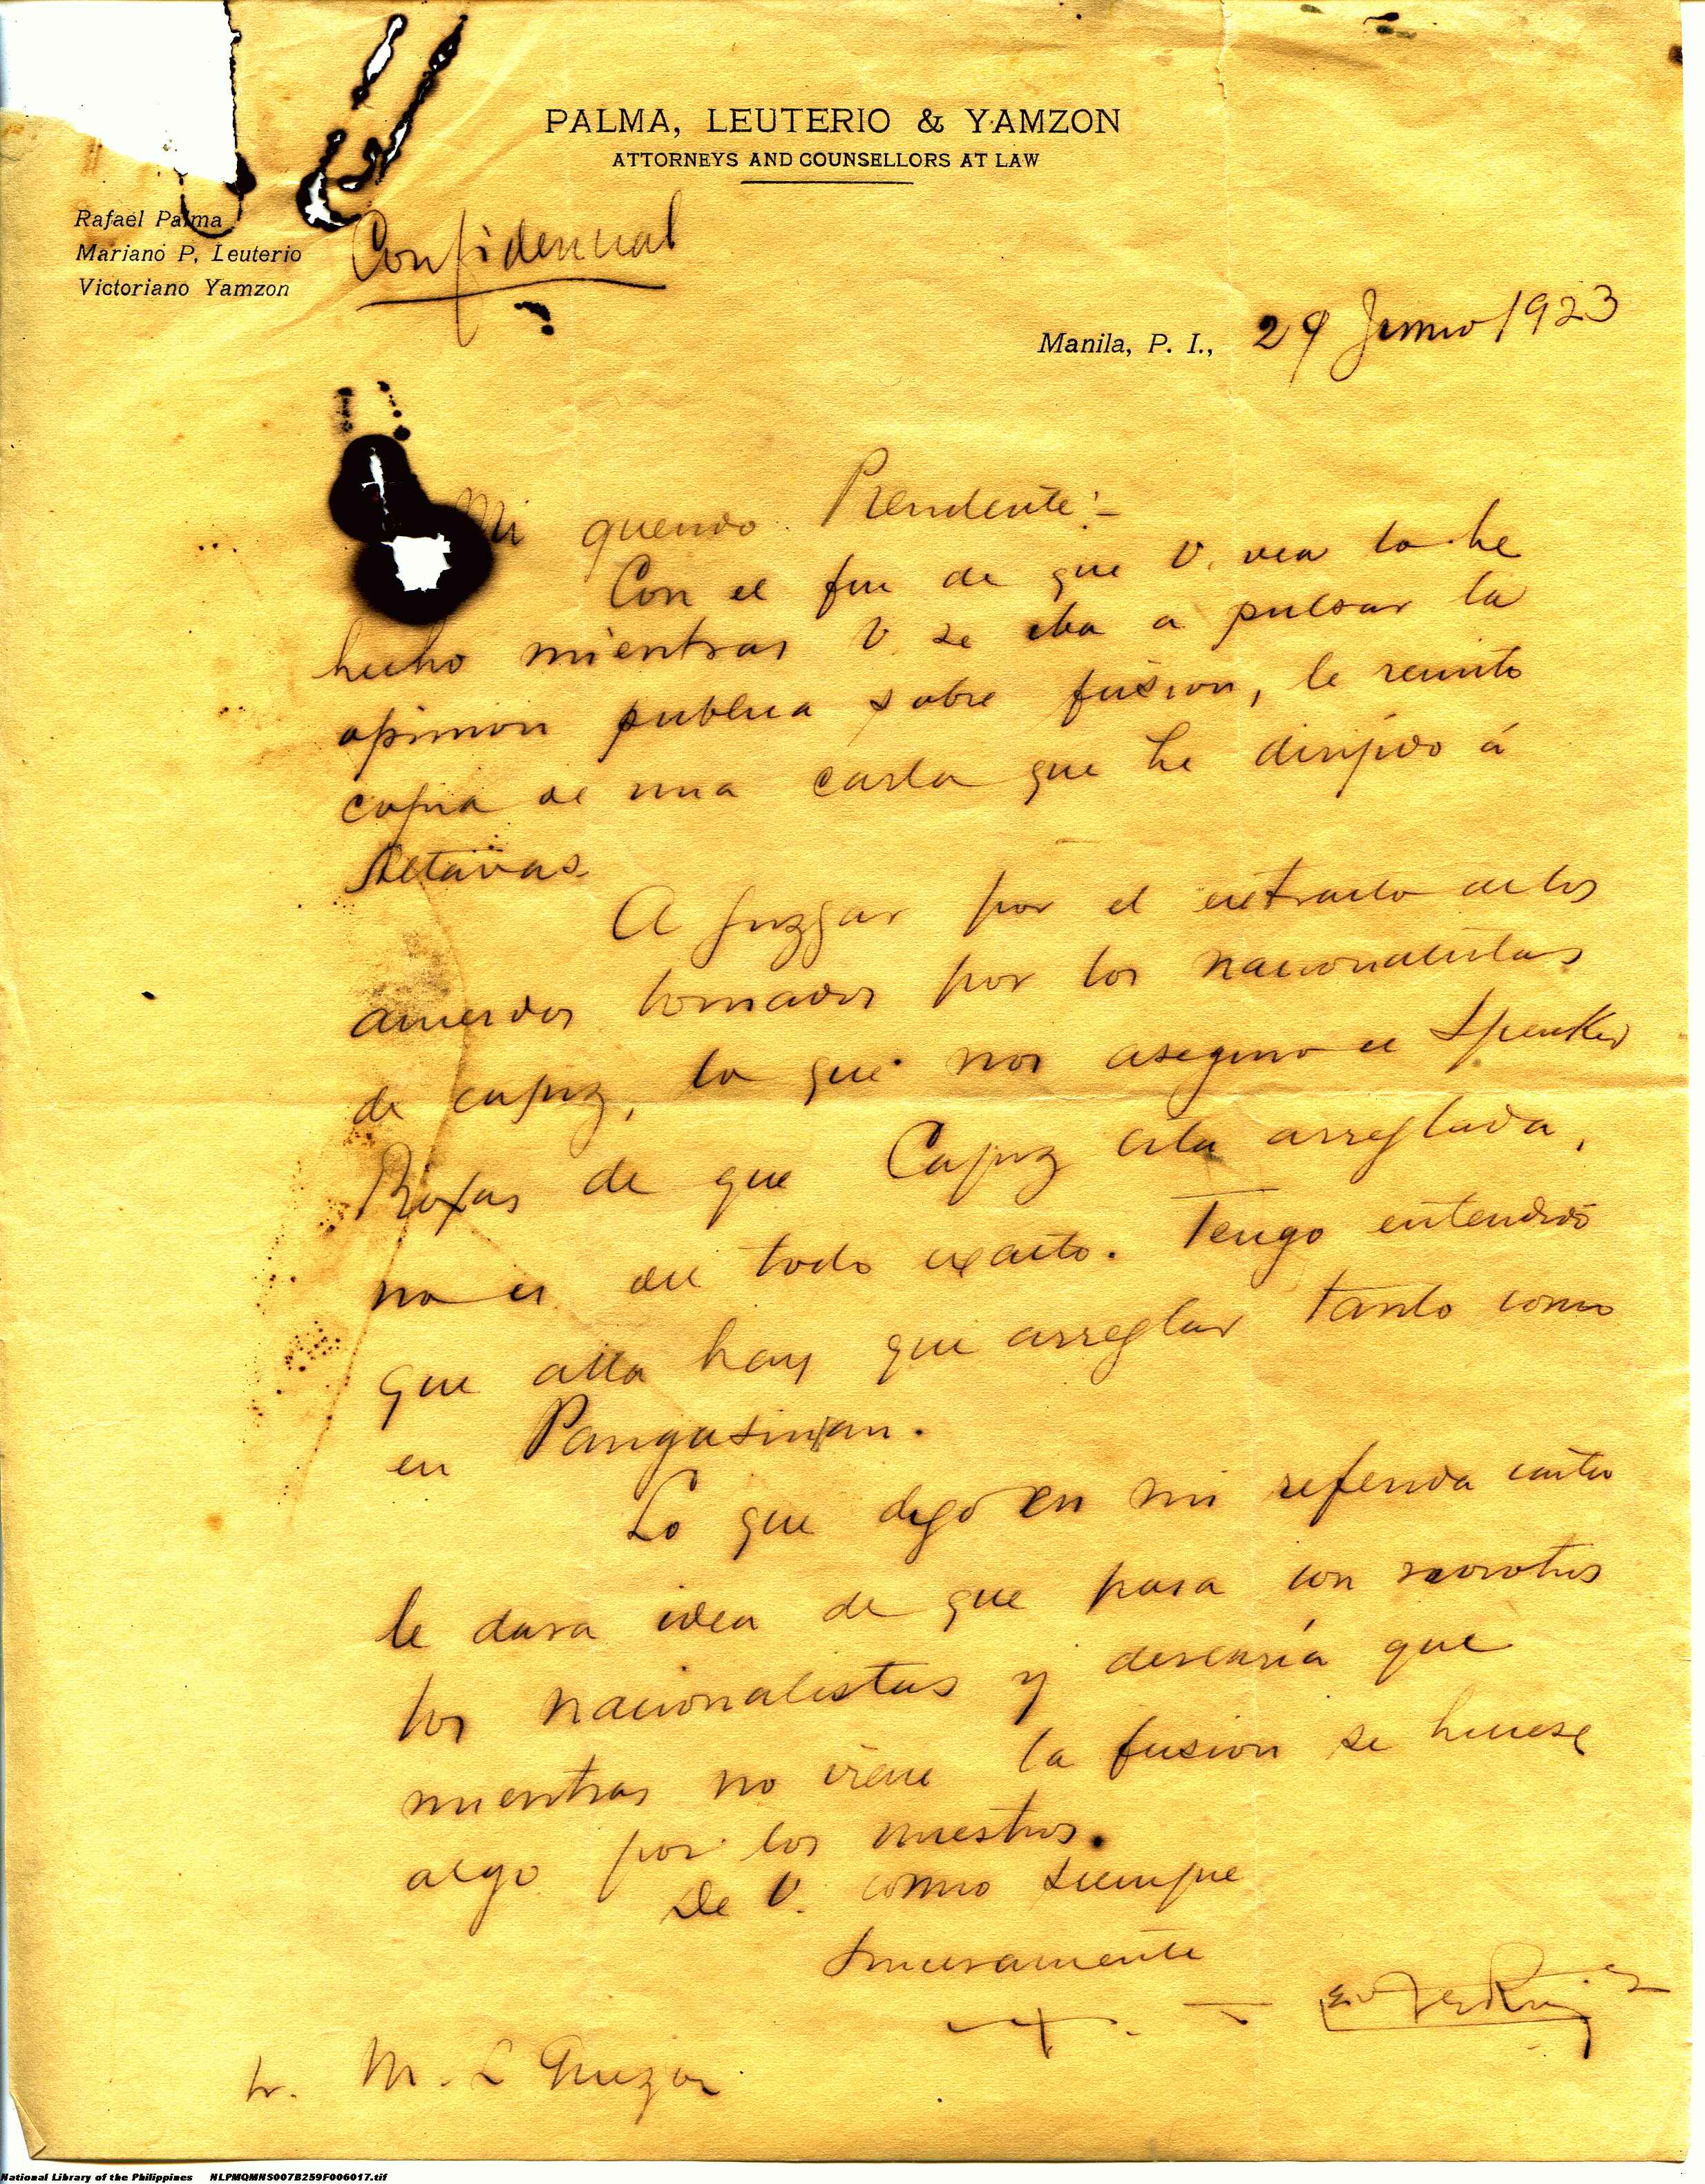 PALMA, LEUTERIO & YAMZON
ATTORNEYS AND COUNSELLORS AT LAW
Rafael Palma
Mariano P. Leuterio
Victoriano Yamzon
Confidencial
Manila, P. I., 29 Junio 1923
Mi querido Presidente:-
Con el fin de que V. vea lo he
hecho mientras V. se iba a pulsar la
opinion publica sobre fusion, le remito
copia de una carta que he dirigido á
Altavas.
A juzgar por el extracto de los
acuerdos tomados por los nacionalistas
de Capiz, lo que nos aseguro el Speaker
Roxas de que Capiz esta arreglada,
no es del todo exacto. Tengo entendido
que alla hay que arreglar tanto como
en Pangasinan.
Lo que digo en mi referida carta
le dara idea de que pasa con nosotros
los nacionalistas y desearia que
mientras no viene la fusion se hiciese
algo por los nuestros.
De V. como siempre
Sinceramente
H. M. L Quezon
National Library of the Philippines NLPMQMNS007B259F006017.tif